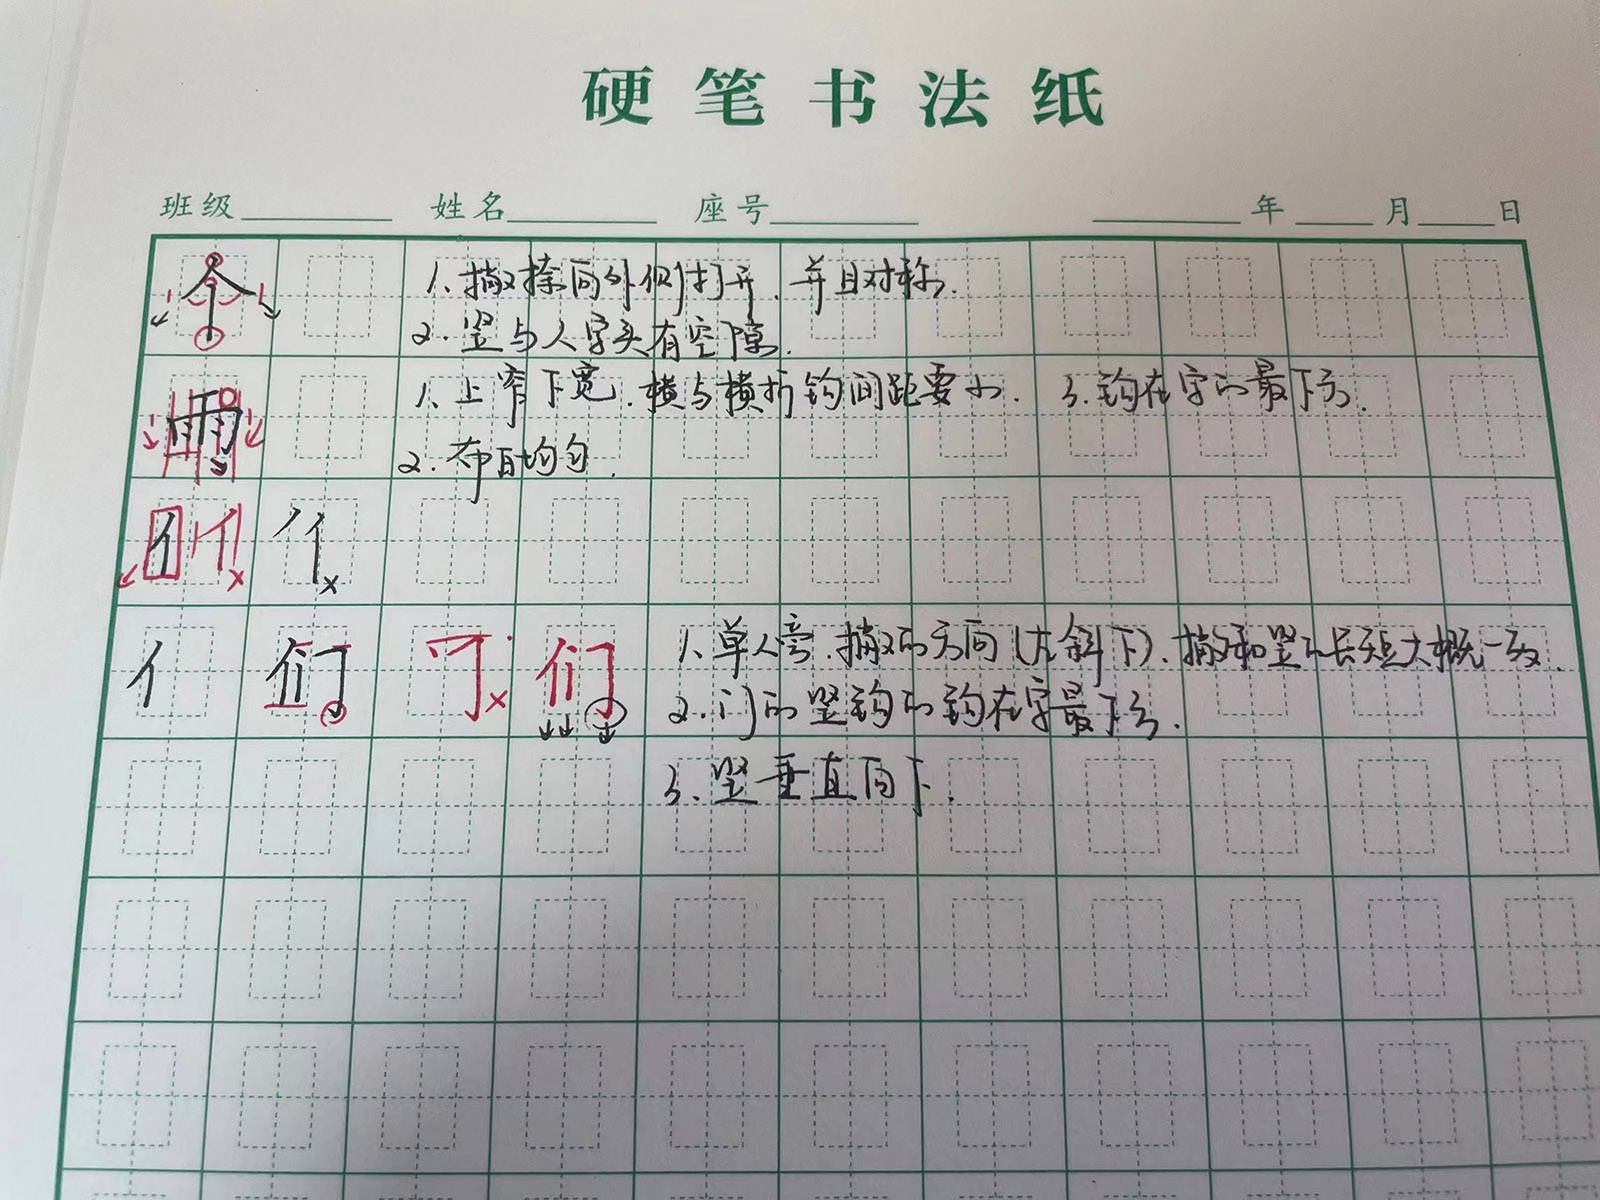 硬笔书法纸
班级 姓名 座号 年 月 日
个 1、撇捺向外侧打开，并且对称。
2、竖与人字头有空隙。
雨 1、上窄下宽，横与横折钩间距要小。 3、钩在字的最下方。
2、布白均匀。
亻 亻 亻 ×
亻 们 × 们 1、单人旁，撇的方向（左斜下），撇和竖的长短大概一致。
2、门的竖钩的钩在字最下方。
3、竖垂直向下。